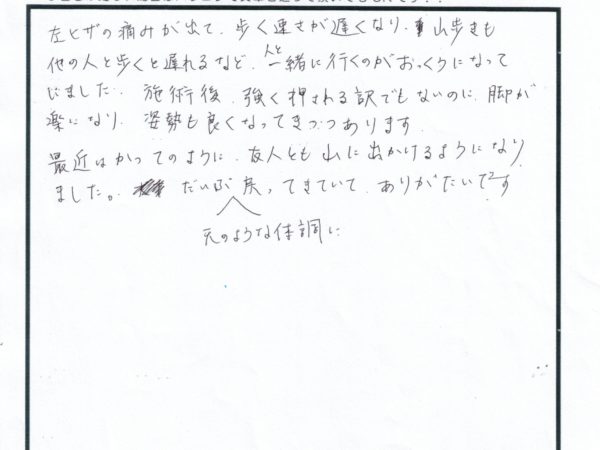 左ヒザの痛みが出て、歩く速さが遅くなり、山歩きも
他の人と歩くと遅れるなど、人と一緒に行くのがおっくうになって
いました。施術後、強く押される訳でもないのに、脚が
楽になり、姿勢も良くなってきつつあります。
最近はかつてのように、友人とも山に出かけるようになり
ました。だいぶ戻ってきていて、ありがたいです
元のような体調に